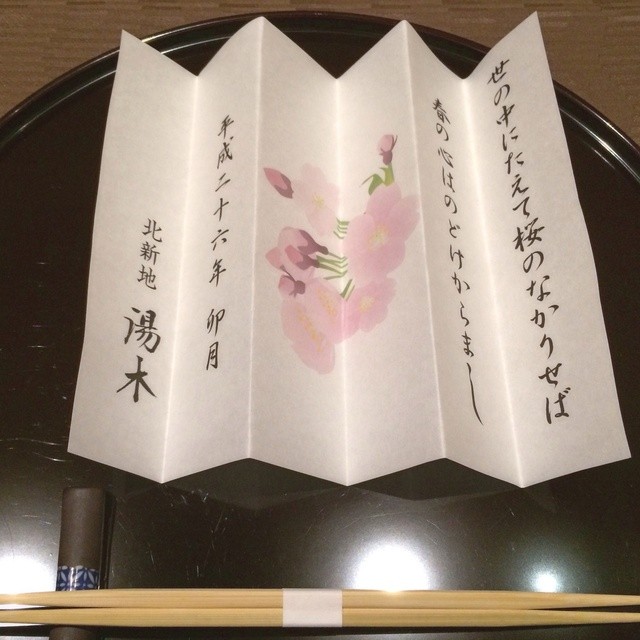 世の中にたえて桜のなかりせば
春の心はのどけからまし
平成二十六年 卯月
北新地 湯木